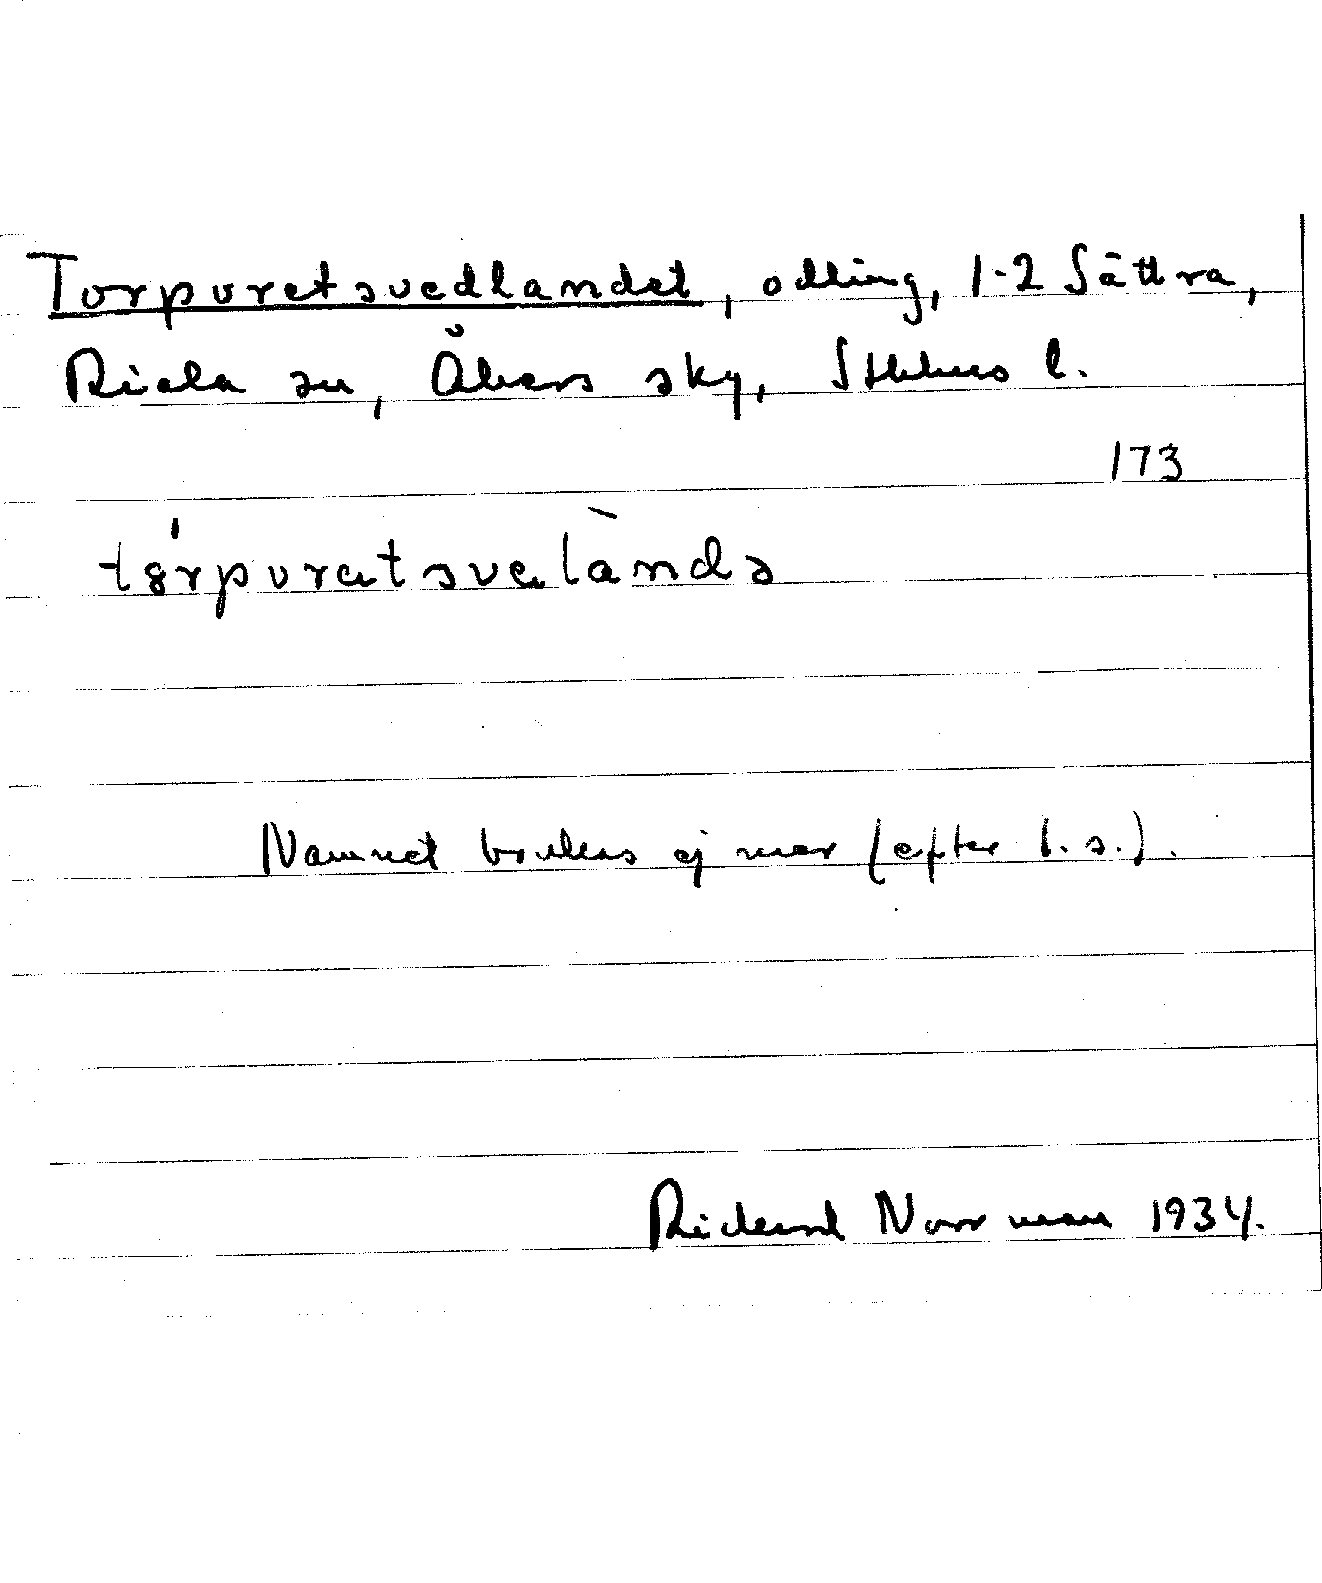 Torpuretsvedlandet, odling, 1-2 Sättra,
Riala sn, Åkers sky, Sthlms l.
173
tǫrpuretsvelandə
Namnet brukas ej mer (efter l. s.).
Rickard Norrman 1934.